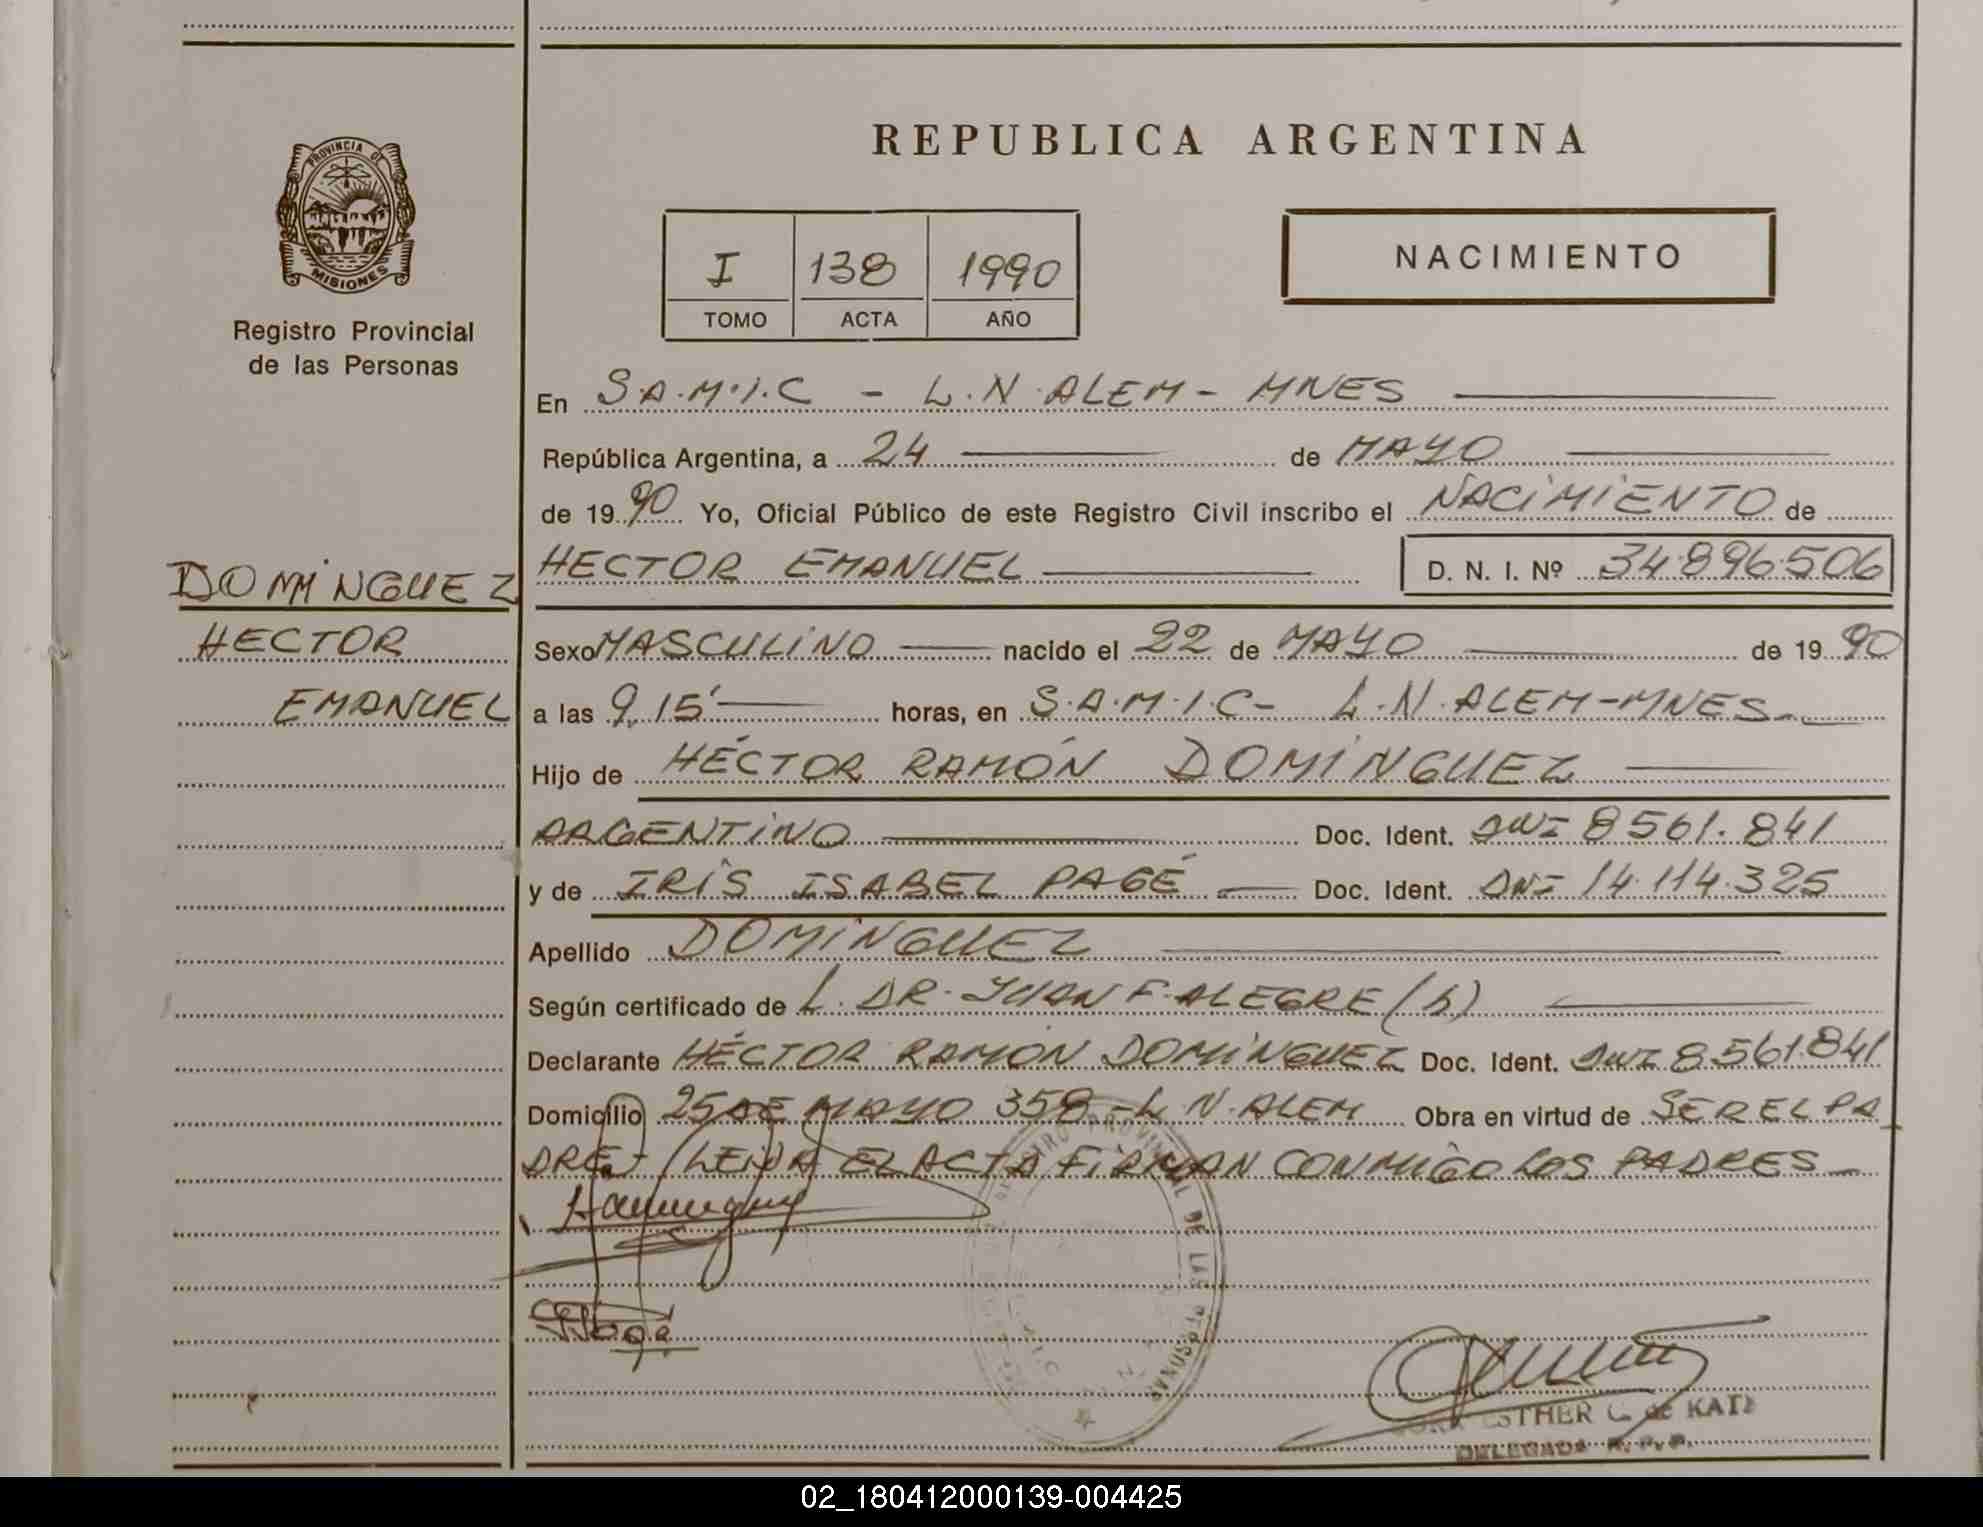 REPUBLICA ARGENTINA
PROVINCIA DE
MISIONES
Registro Provincial
de las Personas
I 138 1990
TOMO ACTA AÑO
NACIMIENTO
En S.A.M.I.C - L.N. ALEM - MNES
República Argentina, a 24 de MAYO
de 1990 Yo, Oficial Público de este Registro Civil inscribo el NACIMIENTO de
HECTOR EMANUEL D. N. I. Nº 34.896.506
DOMINGUEZ
HECTOR
EMANUEL
Sexo MASCULINO nacido el 22 de MAYO de 1990
a las 9,15' horas, en S.A.M.I.C - L.N. ALEM - MNES
Hijo de HÉCTOR RAMÓN DOMINGUEZ
ARGENTINO Doc. Ident. DNI 8561.841
y de IRIS ISABEL PAGÉ Doc. Ident. DNI 14.114.325
Apellido DOMINGUEZ
Según certificado de L. DR. JUAN F. ALEGRE (h)
Declarante HÉCTOR RAMÓN DOMINGUEZ Doc. Ident. DNI 8.561.841
Domicilio 25 DE MAYO 358 - L.N. ALEM Obra en virtud de SER EL PA
DRE LEIDA EL ACTA FIRMAN CONMIGO LOS PADRES
REGISTRO PROVINCIAL DE LAS PERSONAS
ESTHER de KATZ
DELEGADA R.P.P.
02_180412000139-004425